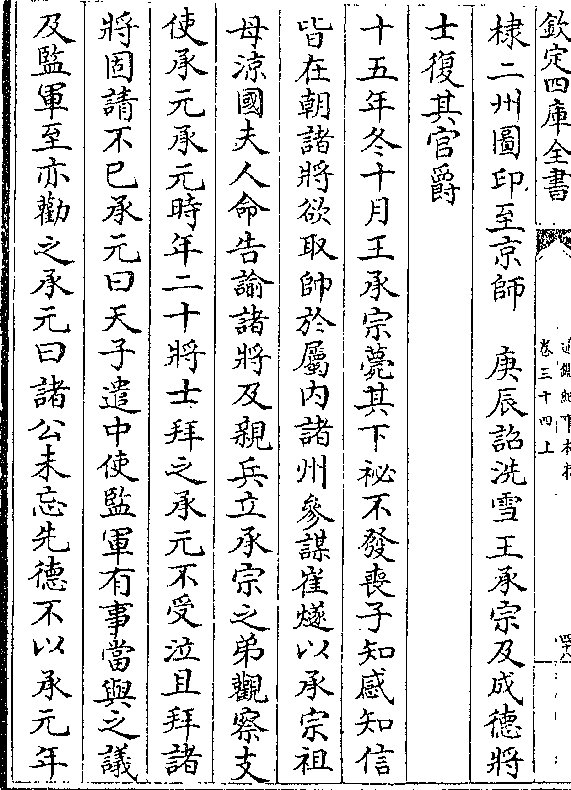 欽定四庫全書
卷三十四上
棣二州圖印至京師　庚辰詔洗雪王承宗及成德將
士復其官爵
十五年冬十月王承宗薨其下祕不發喪子知感知信
皆在朝諸將欲取帥於屬内諸州參謀崔燧以承宗祖
母涼國夫人命告諭諸將及親兵立承宗之弟觀察支
使承元承元時年二十將士拜之承元不受泣且拜諸
將固請不已承元曰天子遣中使監軍有事當與之議
及監軍至亦勸之承元曰諸公未忘先德不以承元年